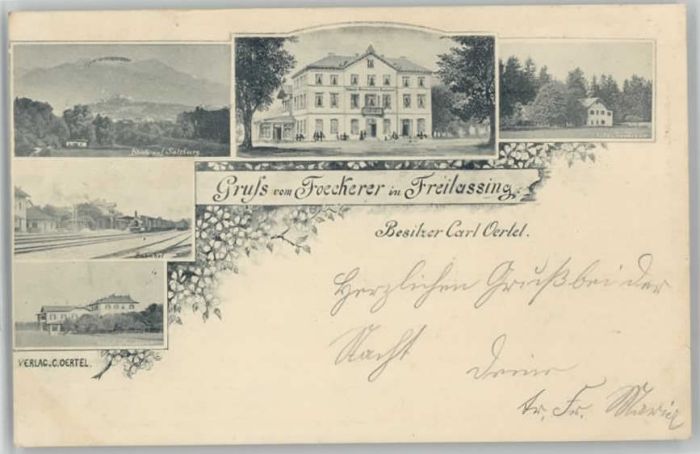 Blick auf Salzburg
Gruſs vom Foeckerer in Freilassing.
Besitzer Carl Oertel.
Bahnhof
VERLAG.C.OERTEL.
Herzlichen Gruß bei der
Nacht Deine
tr. Fr. Marie